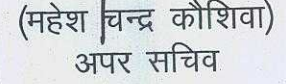 (महेश चन्द्र कौशिवा)
अपर सचिव